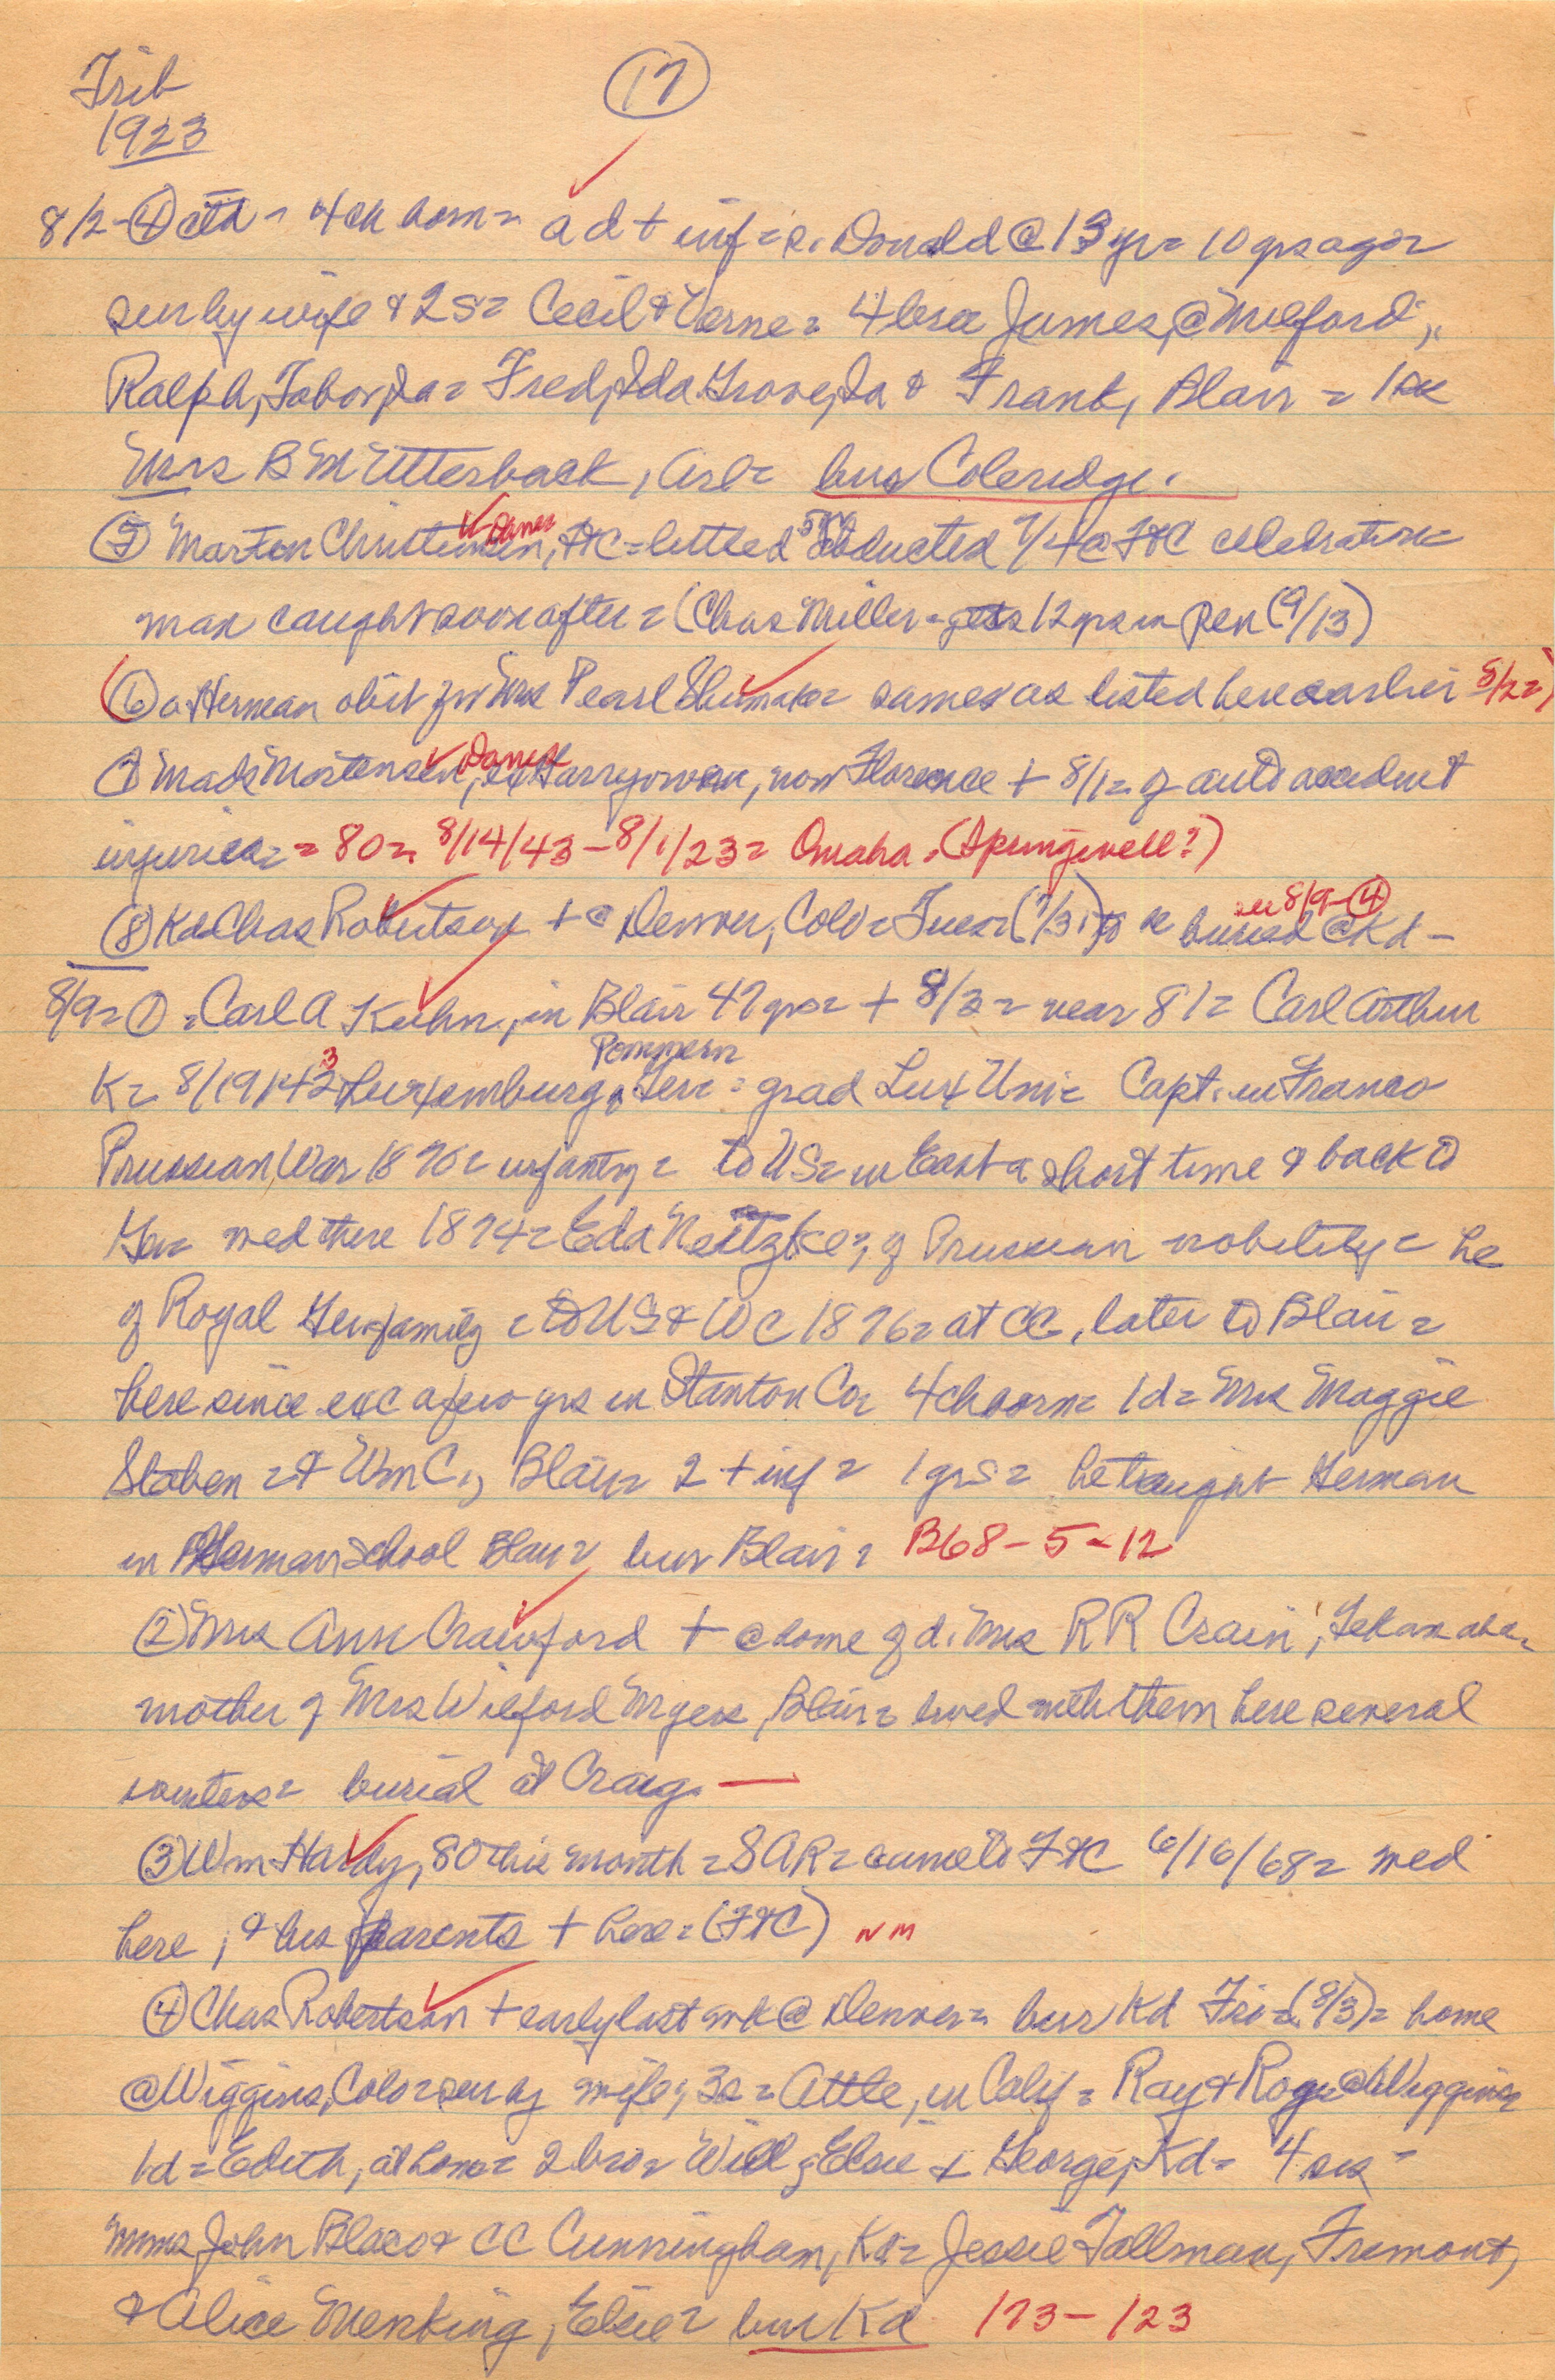 Trib
17
1923
8/2-④ ctd = 4 ch born = a d + inf = s. Donald @ 13 yr = 10 yrs ago =
sur by wife & 2 s = Cecil & Verne = 4 bros James, @ Milford,
Ralph, Tabor, Ia = Fred, Ida Grove, Ia & Frank, Blair = 1 sis
Mrs B M Utterback, Arl = bur Coleridge.
Danes
⑤ Marton Christensen, FtC = little d abducted 7/4 @ FtC celebration =
man caught soon after = (Chas Miller = gets 12 yrs in pen (9/13)
(⑥ a Herman obit for Mrs Pearl Shumaker = same as listed here earlier 5/22=)
Danes
⑦ Mads Mortensen, ex Harrygowan, now Florence + 8/1 = of auto accident
injuries = = 80 = 8/14/43 - 8/1/23 = Omaha. (Springwell?)
see 8/9-④
⑧ Kd Chas Robertson + @ Denver, Colo = Tues = (7/31) to be buried @ Kd -
8/9 = ① = Carl A Kuhn, in Blair 47 yrs = + 8/3 = near 81 = Carl Arthur
Pommern
3
K = 8/19/42 Luxemburg, Ger = grad Lux Uni = Capt. in Franco
Prussian War 1870 = infantry = to US = in East a short time & back to
Ger = med there 1874 = Eda Neitzke, of Prussian nobility = he
of Royal Ger family = to US & WC 1876 = at CC, later to Blair =
here since exc a few yrs in Stanton Co = 4 ch born = 1 d = Mrs Maggie
Staben = & Wm C., Blair = 2 + inf = 1 grs = he taught German
in German School Blair = bur Blair = B68-5-12
② Mrs Ann Crawford + @ home of d. Mrs R R Crain, Tekamah =
mother of Mrs Wilford Myers, Blair = lived with them here several
winters = burial at Craig. —
③ Wm Hardy, 80 this month = SAR = came to FtC 6/16/68 = med
here, & his parents + here = (FtC) NM
④ Chas Robertson + early last wk @ Denver = bur Kd Fri = (8/3) = home
@ Wiggins, Colo = sur by wife, 3 s = Attle, in Calif = Ray & Roy @ Wiggins
1 d = Edith, at home = 2 bro = Will, Elsie + George, Kd = 4 sis =
mmes John Blaco & CC Cunningham, Kd = Jessie Tallman, Fremont,
& Alice Menking, Elsie = bur Kd 173-123